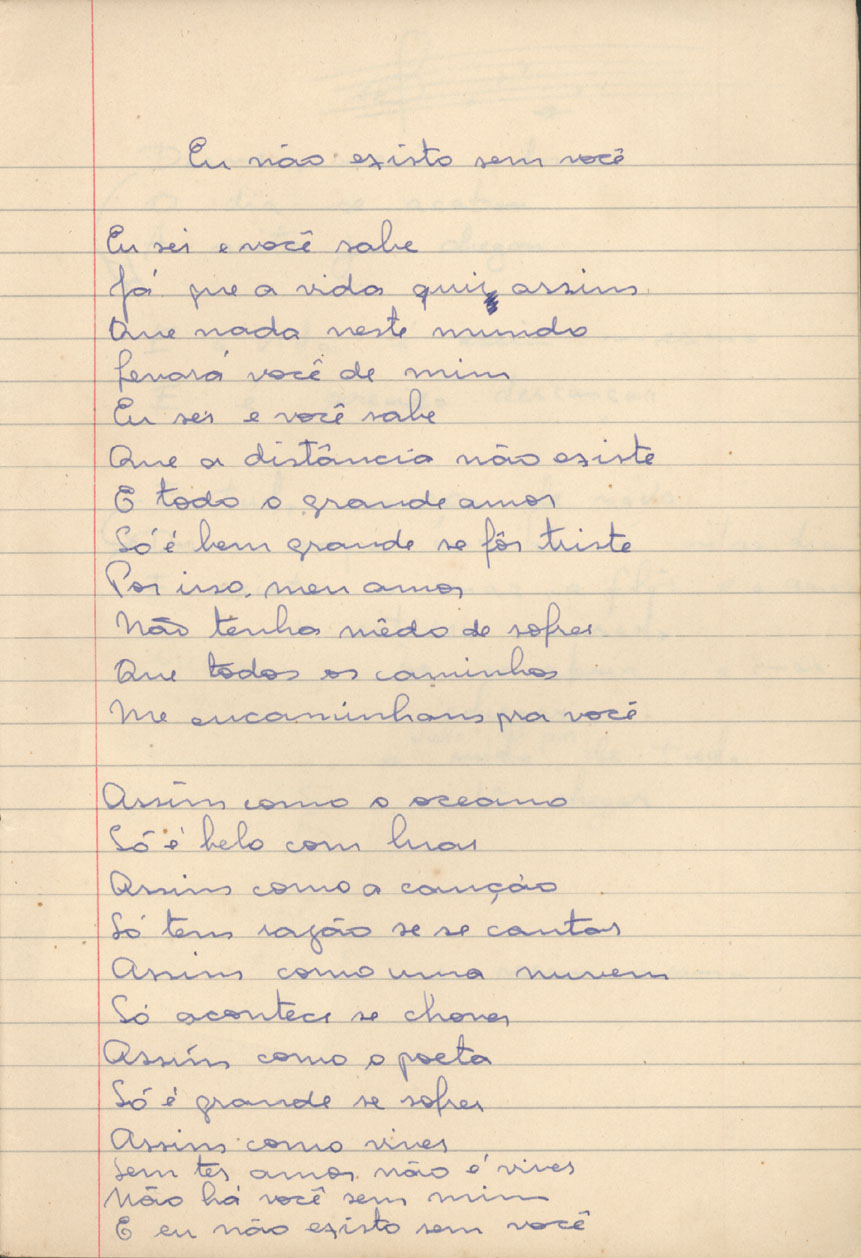 Eu não existo sem você
Eu sei e você sabe
Já que a vida quiz assim
Que nada neste mundo
Levará você de mim
Eu sei e você sabe
Que a distância não existe
E todo o grande amor
Só é bem grande se fôr triste
Por isso, meu amor
Não tenha mêdo de sofrer
Que todos os caminhos
Me encaminham pra você
Assim como o oceano
Só é belo com luar
Assim como a canção
Só tem razão se se cantar
Assim como uma nuvem
Só acontece se chover
Assim como o poeta
Só é grande se sofrer
Assim como viver
Sem ter amor não é viver
Não há você sem mim
E eu não existo sem você